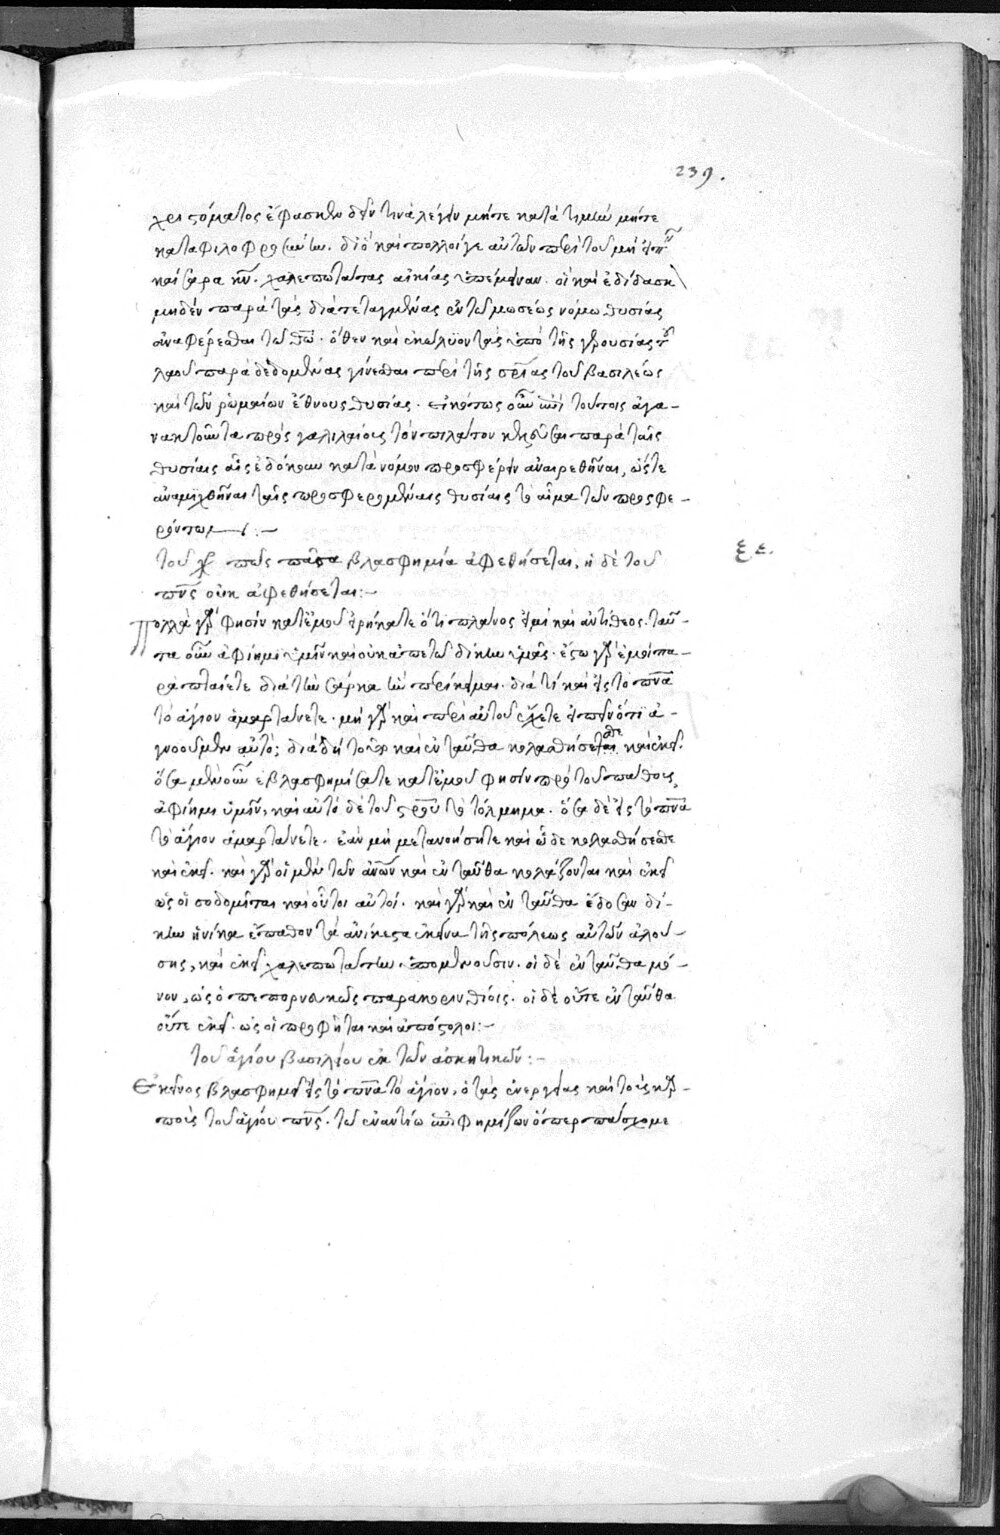 239.
χρι στόματος ἔφασκον δεῖν τινὰ λέγειν μήτε κατὰ τιμὴν μήτε
κατὰ φιλοφροσύνην. διὸ καὶ πολλοί γε αὐτῶν περὶ τοῦ μὴ εἰπεῖν
καίσαρα κν̅. χαλεπωτάτας αἰκίας ὑπέμειναν. οἳ καὶ ἐδίδασκ
μηδὲν παρὰ τὰς διατεταγμένας ἐν τῶ μωσέως νόμω θυσίας
ἀναφέρεσθαι τῶ θω̅. ὅθεν καὶ ἐκώλυον τὰς ὑπὸ τῆς γερουσίας τοῦ
λαοῦ παραδεδομένας γίνεσθαι περὶ τῆς σρ̅ίας τοῦ βασιλέως
καὶ τῶν ῥωμαίων ἔθνους θυσίας. εἰκότως οὖν ἐπὶ τούτοις ἀγα-
νακτοῦντα πρὸς γαλιλαίους τὸν πιλᾶτον κελεῦσαι παρὰ ταῖς
θυσίαις αἷς ἐδόκουν κατὰ νόμον προσφέρειν ἀναιρεθῆναι, ὥστε
ἀναμιχθῆναι ταῖς προσφερομέναις θυσίαις τὸ αἷμα τῶν προσφε-
ρόντων:-
τοῦ χρ πῶς πᾶσα βλασφημία ἀφεθήσεται, ἡ δὲ τοῦ
πν̅ς οὐκ ἀφεθήσεται:-
ξε.
Πολλὰ γὰρ φησὶν κατ' ἐμοῦ εἰρήκατε ὅτι πλάνος εἰμὶ καὶ ἀντίθεος. ταῦ-
τα οὖν ἀφίημι ὑμῖν καὶ οὐκ ἀπαιτῶ δίκην ὑμᾶς. ἔξω γὰρ ἐμοὶ πα-
ραπταίετε διὰ τὴν σάρκα ἣν περίκειμαι. διὰ τί καὶ εἰς τὸ πν̅α
τὸ ἅγιον ἁμαρτάνετε. μὴ γὰρ καὶ περὶ αὐτοῦ ἔχετε εἰπεῖν ὅτι ἀ-
γνοοῦμεν αὐτό; διὰ δὴ τοῦτο καὶ ἐνταῦθα κολασθήσεσθε καὶ ἐκεῖ.
ὅσα μὲν οὖν ἐβλασφημήσατε κατ' ἐμοῦ φησὶν πρὸ τοῦ πάθους,
ἀφίημι ὑμῖν, καὶ αὐτὸ δὲ τοῦ σρ̅οῦ τὸ τόλμημα. ὅσα δὲ εἰς τὸ πν̅α
τὸ ἅγιον ἁμαρτάνετε. ἐὰν μὴ μετανοήσητε καὶ ὧδε κολασθήσεσθε
καὶ ἐκεῖ. καὶ γὰρ οἱ μὲν τῶν ἀν̅ων καὶ ἐνταῦθα κολάζονται καὶ ἐκεῖ
ὡς οἱ σοδομῖται καὶ οὗτοι αὐτοί. καὶ γὰρ καὶ ἐνταῦθα ἔδοσαν δί-
κην ἡνίκα ἔπαθον τὰ ἀνίκεστα ἐκεῖνα τῆς πόλεως αὐτῶν ἁλού-
σης, καὶ ἐκεῖ χαλεπωτάτην ὑπομένουσιν. οἱ δὲ ἐνταῦθα μό-
νον, ὡς ὁ πεπορνευκὼς παρὰ κορινθίοις. οἱ δὲ οὔτε ἐνταῦθα
οὔτε ἐκεῖ. ὡς οἱ προφῆται καὶ ἀπόστολοι:-
τοῦ ἁγίου βασιλείου ἐκ τῶν ἀσκητικῶν:-
Ἐκεῖνος βλασφημεῖ εἰς τὸ πν̅α τὸ ἅγιον, ὁ τὰς ἐνεργείας καὶ τοὺς καρ-
ποὺς τοῦ ἁγίου πν̅ς. τῶ ἐναντίω ἐπιφημίζων ὅπερ πάσχομε